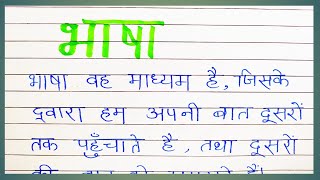 भाषा
भाषा वह माध्यम है, जिसके
द्वारा हम अपनी बात दूसरों
तक पहुँचाते है, तथा दूसरों
की